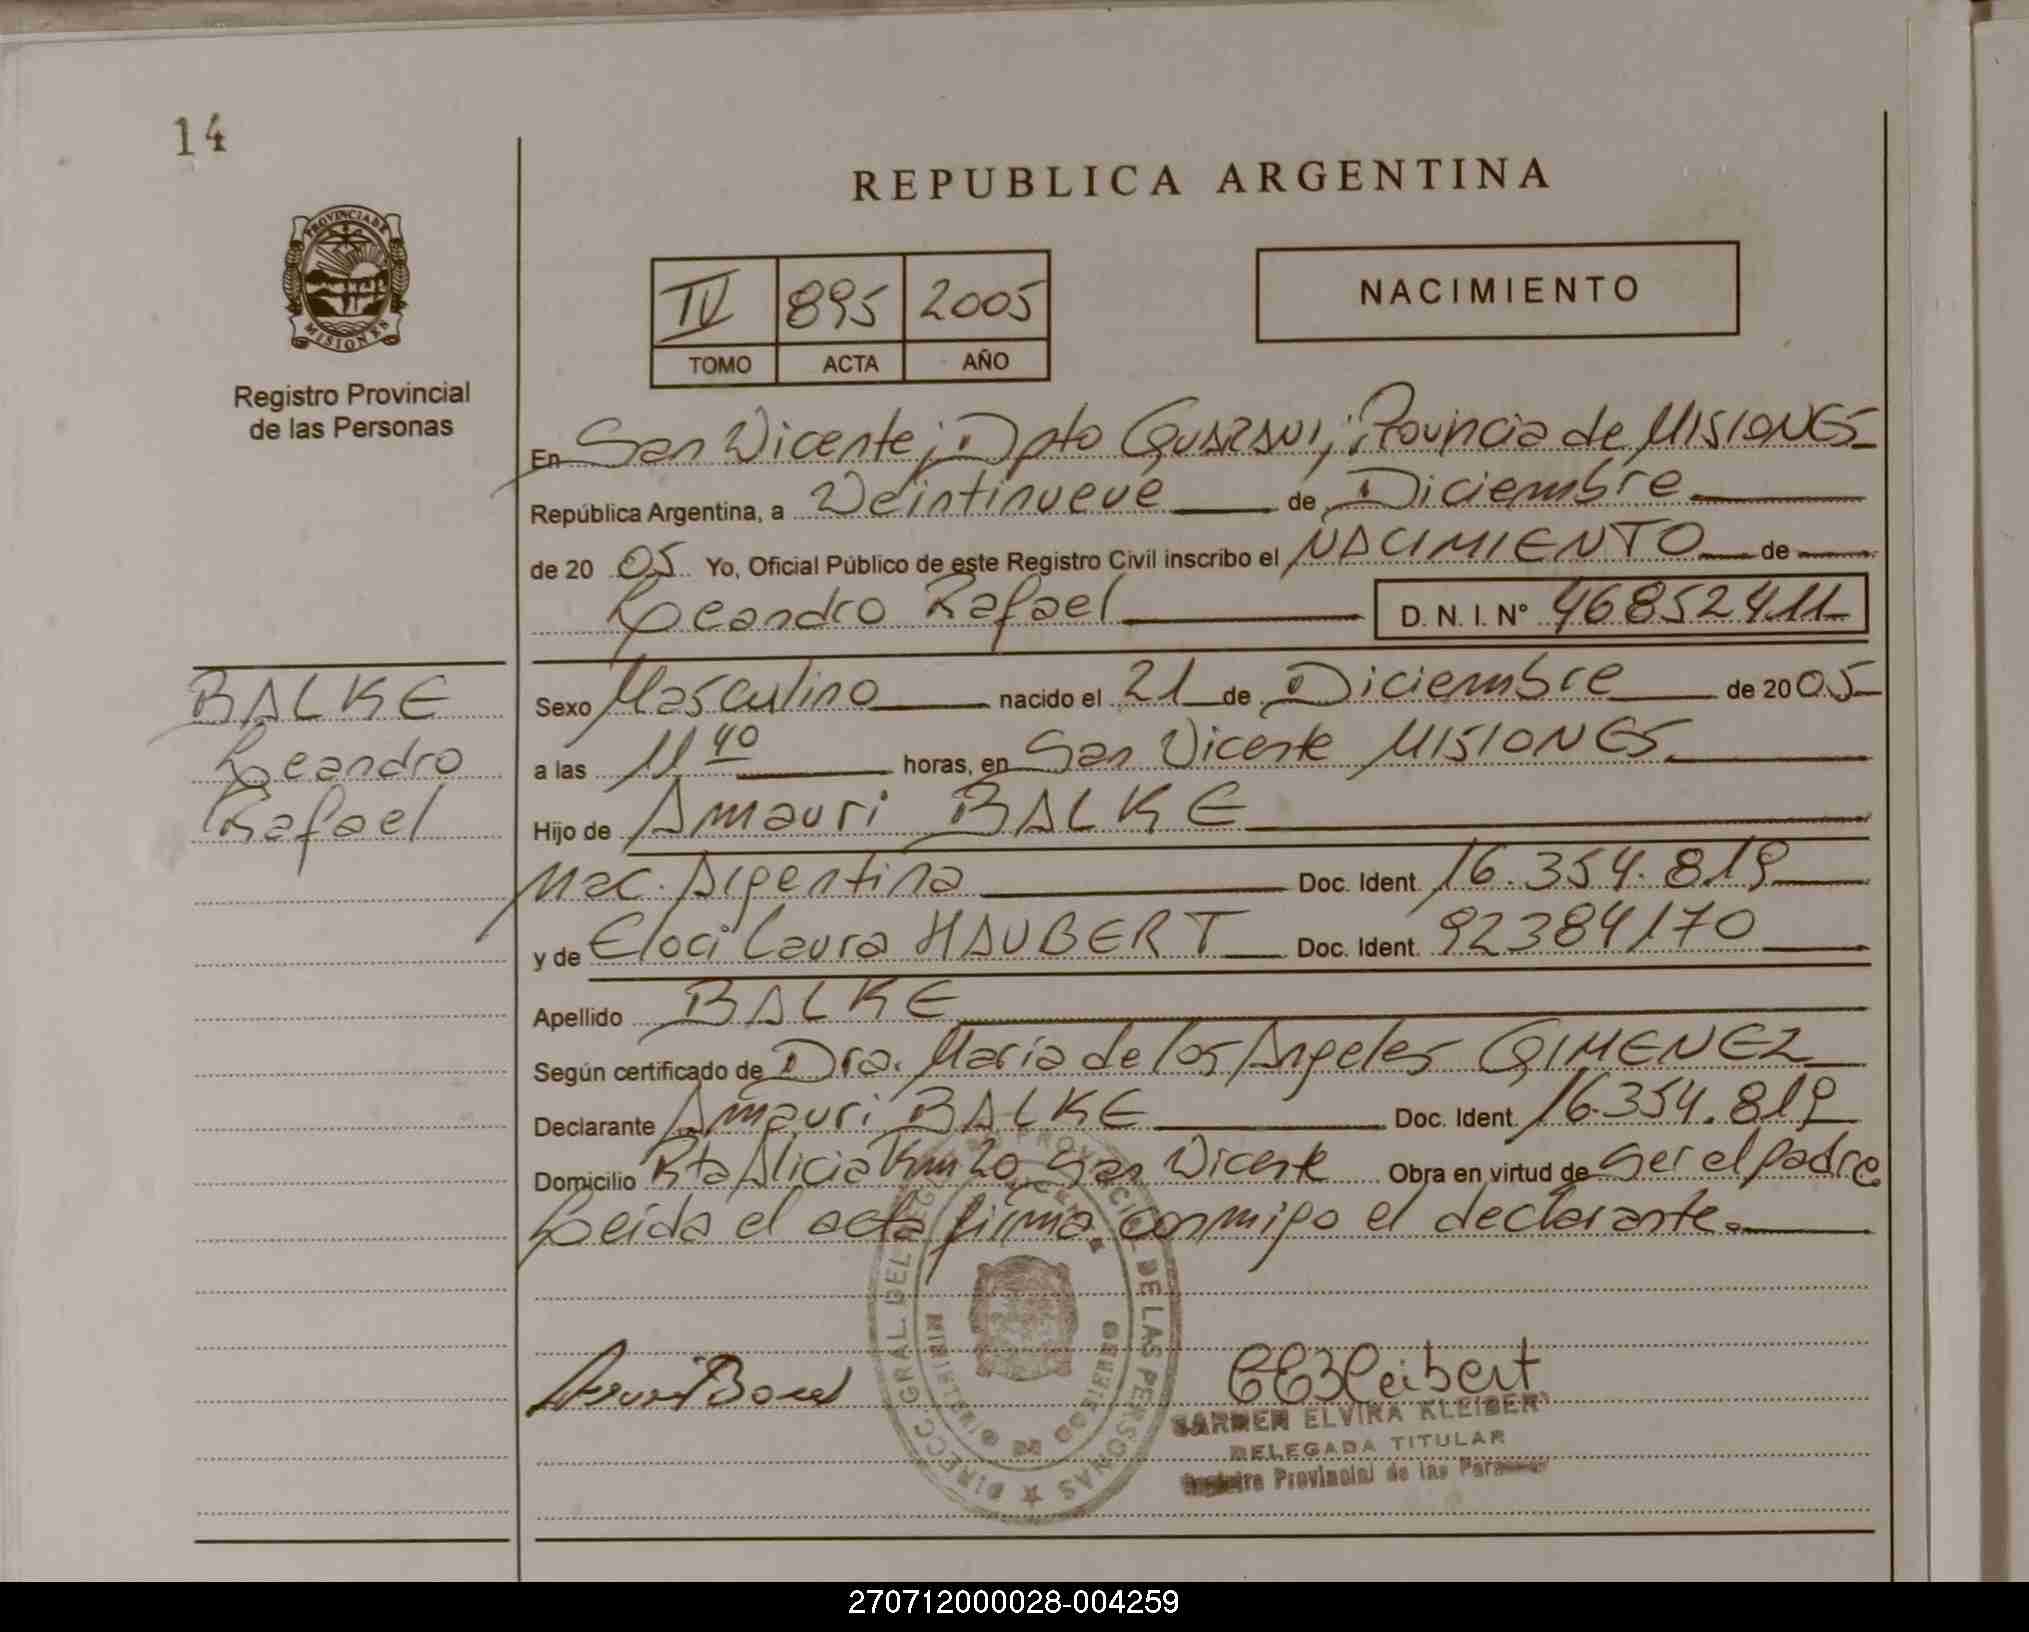 14
REPUBLICA ARGENTINA
PROVINCIA DE
MISIONES
Registro Provincial
de las Personas
IV 895 2005
TOMO ACTA AÑO
NACIMIENTO
En San Vicente, Dpto Guarani, Provincia de MISIONES
República Argentina, a Veintinueve de Diciembre
de 20 05 Yo, Oficial Público de este Registro Civil inscribo el NACIMIENTO de
Leandro Rafael D. N. I. N° 46852411
BALKE
Leandro
Rafael
Sexo Masculino nacido el 21 de Diciembre de 20 05
a las 11 40 horas, en San Vicente MISIONES
Hijo de Amauri BALKE
Nac. Argentina Doc. Ident. 16.354.819
y de Eloci Laura HAUBERT Doc. Ident. 92384170
Apellido BALKE
Según certificado de Dra. Maria de los Angeles GIMENEZ
Declarante Amauri BALKE Doc. Ident. 16.354.819
Domicilio Rta Alicia Km 20 San Vicente Obra en virtud de ser el padre
Leida el acta firma conmigo el declarante.
DIRECC. GRAL. DEL REG PROVINCIAL DE LAS PERSONAS
MINISTERIO DE GOBIERNO
CARMEN ELVIRA KLEIBER
DELEGADA TITULAR
Registro Provincial de las Personas
270712000028-004259